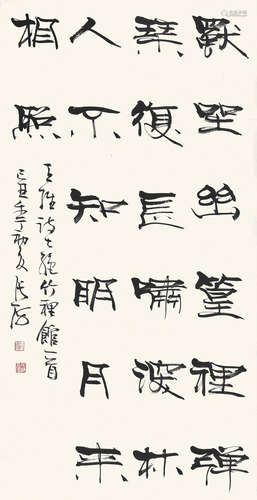 獨坐幽篁裡彈
琴復長嘯深林
人不知明月來
相照
王維詩絕竹裡館一首
己丑年初夏張海